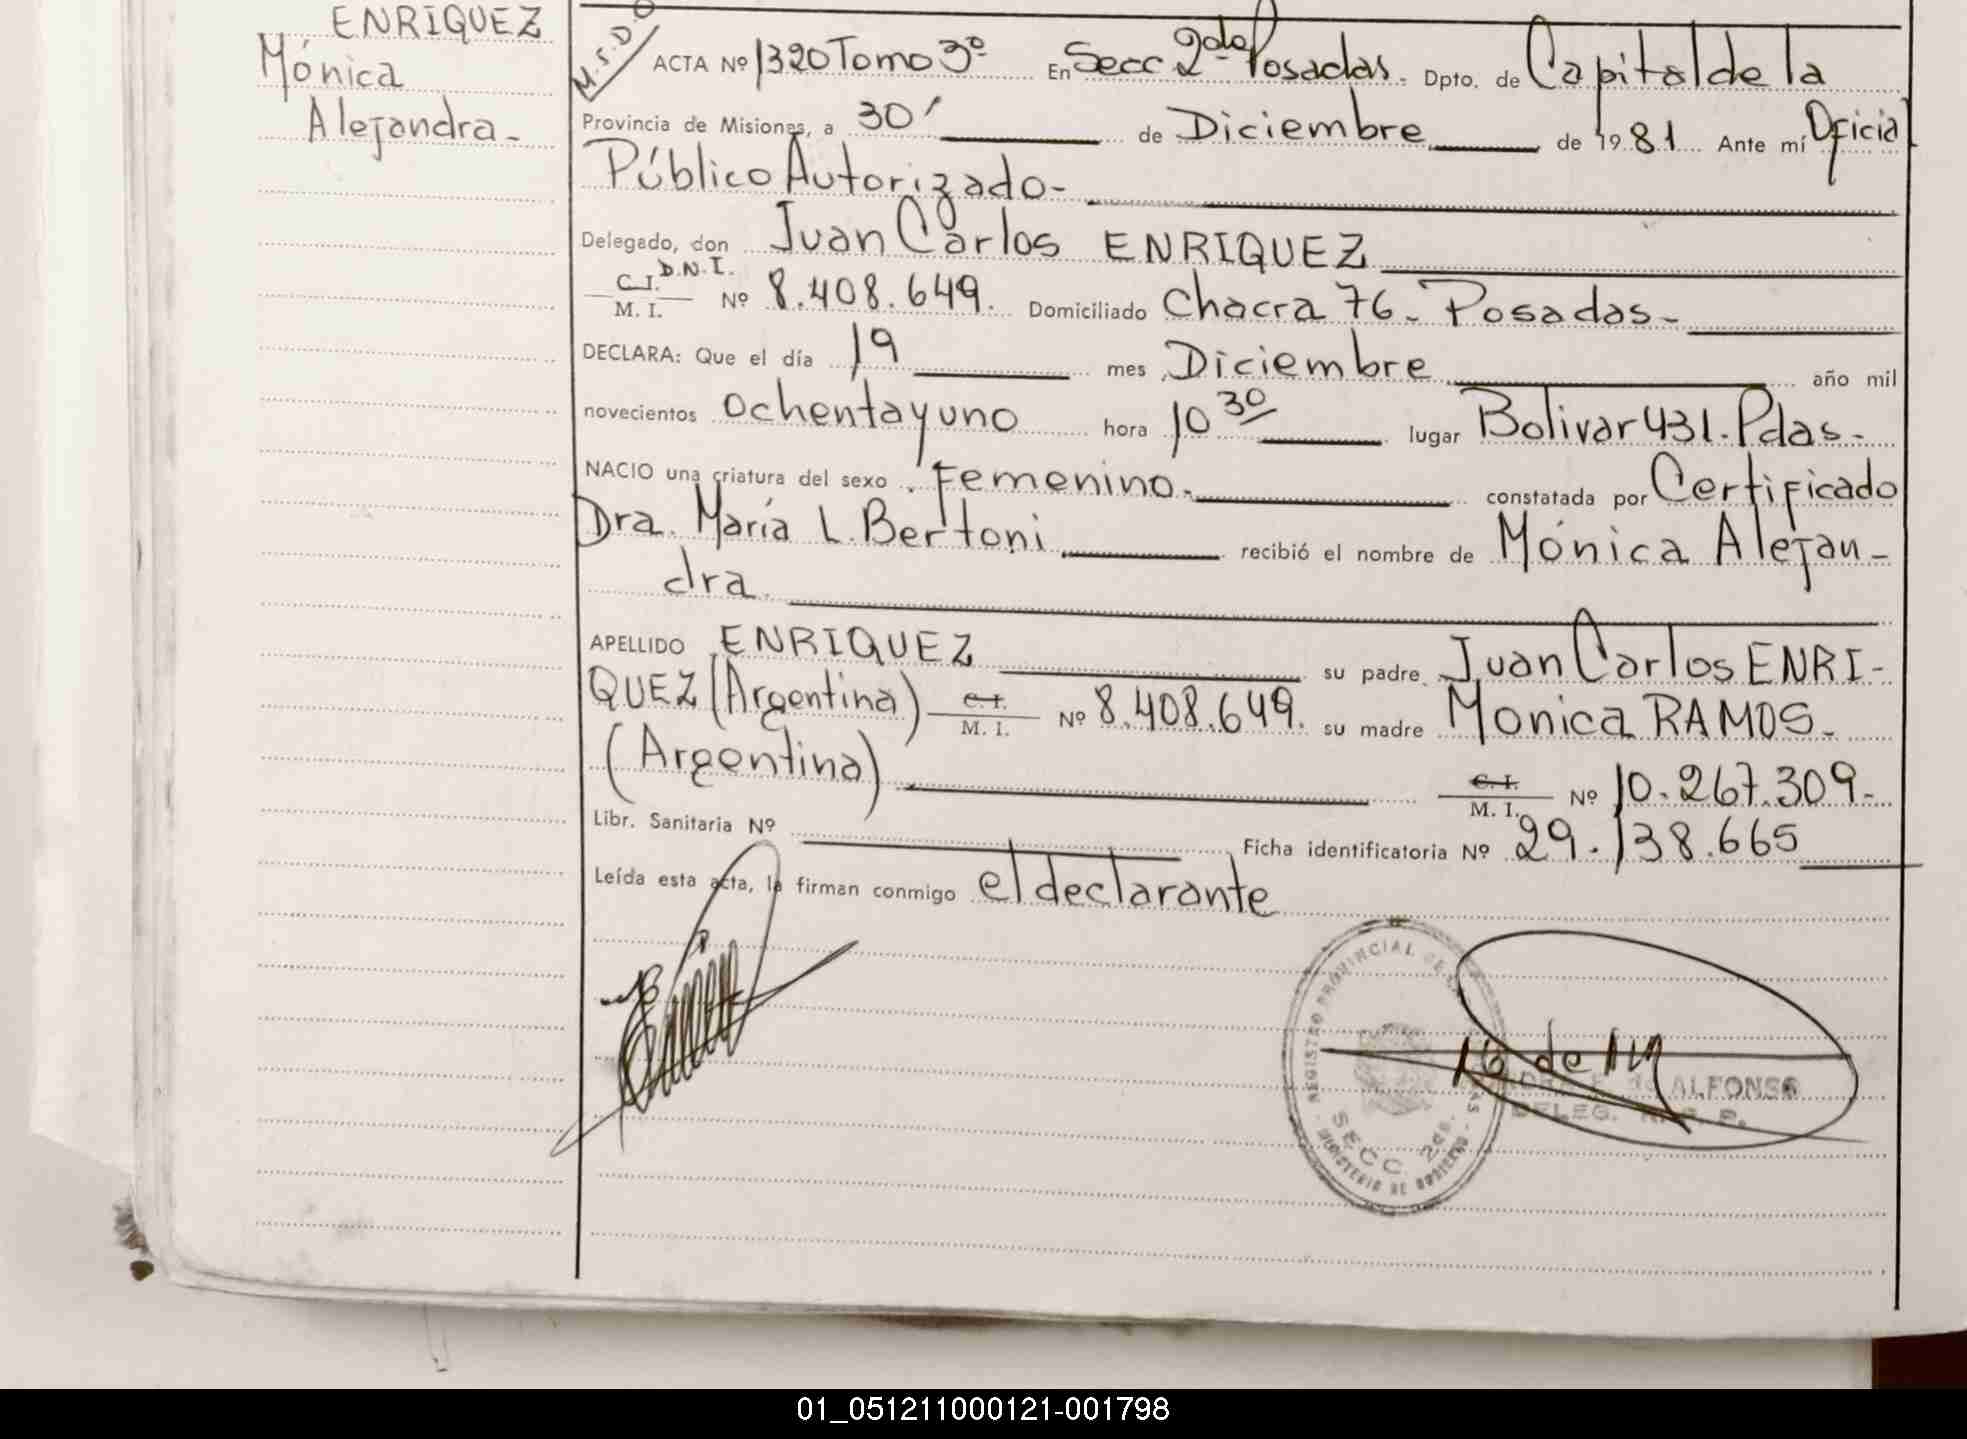 ENRIQUEZ
Mónica
Alejandra-
M.S.D.O
ACTA Nº 1320 Tomo 3º En Secc 2da Posadas. Dpto. de Capital de la
Provincia de Misiones, a 30 de Diciembre de 1981 Ante mí Oficial
Público Autorizado-
Delegado, don Juan Carlos ENRIQUEZ
C.I. D.N.I.
M. I. Nº 8.408.649. Domiciliado Chacra 76- Posadas-
DECLARA: Que el día 19 mes Diciembre año mil
novecientos Ochenta y uno hora 10 30 lugar Bolivar 431. Pdas-
NACIO una criatura del sexo Femenino- constatada por Certificado
Dra. María L. Bertoni recibió el nombre de Mónica Alejan-
dra.
APELLIDO ENRIQUEZ su padre Juan Carlos ENRI-
QUEZ (Argentina) C.I. M. I. Nº 8.408.649. su madre Monica RAMOS-
(Argentina) C.I. M. I. Nº 10.267.309-
Libr. Sanitaria Nº Ficha identificatoria Nº 29.138.665
Leída esta acta, la firman conmigo el declarante
REGISTRO PROVINCIAL DE LAS
SECC. 2da.
MINISTERIO DE GOBIERNO
de ALFONSO
DELEG. R. P.
01_051211000121-001798